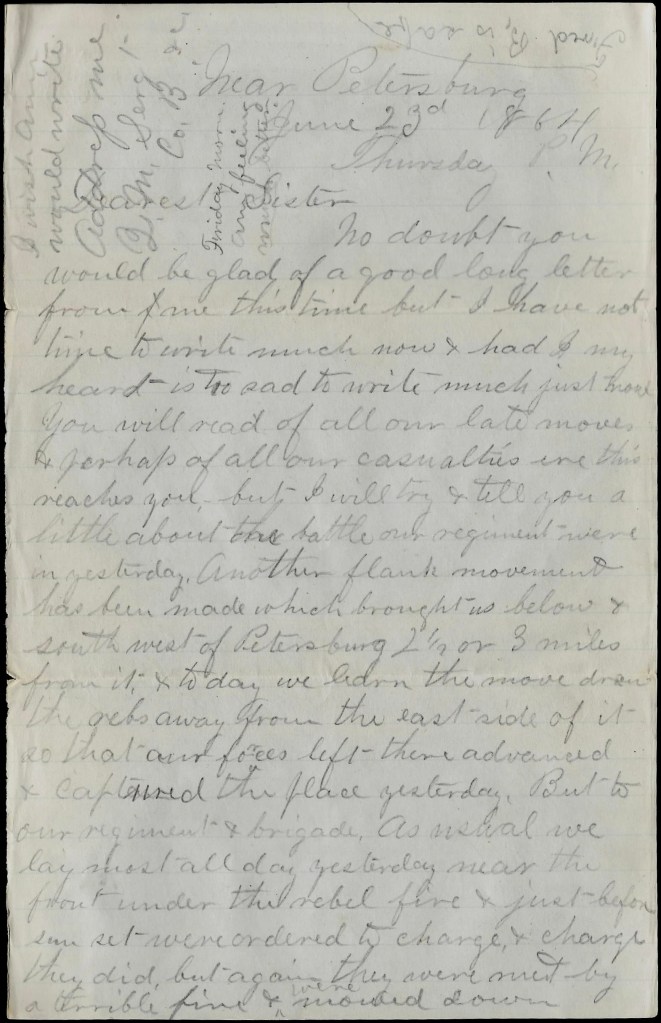 Fred B, is safe
I wish Ann
would write
Address me
Q. M. Serg't
Co. B &c
Friday Morn.
am feeling
much better.
Near Petersburg
June 23d 1864
Thursday P. M.
Dearest Sister
No doubt you
would be glad of a good long letter
from me this time but I have not
time to write much now & had I my
heart is to sad to write much just now
You will read of all our late moves
& perhaps of all our casualties ere this
reaches you, but I will try & tell you a
little about the battle our regiment were
in yesterday. Another flank movement
has been made which brought us below &
south west of Petersburg 2 1/2 or 3 miles
from it, & to day we learn the move drew
the rebs away from the east side of it
so that our forces left there advanced
& captured the place yesterday. But to
our regiment & brigade. As usual we
lay most all day yesterday near the
front under the rebel fire & just before
sun set were ordered to charge, & charge
they did, but again they were met by
a terrible fire & were mowed down